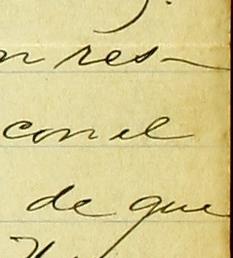 n res-
con el
de que